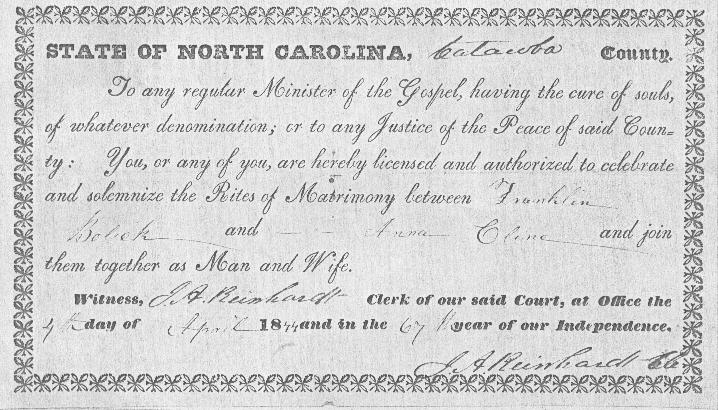 STATE OF NORTH CAROLINA, Catawba County.
To any regular Minister of the Gospel, having the cure of souls,
of whatever denomination; or to any Justice of the Peace of said Coun-
ty: You, or any of you, are hereby licensed and authorized to celebrate
and solemnize the Rites of Matrimony between Franklin
Bolick and Anna Cline and join
them together as Man and Wife.
Witness, J. A. Reinhardt Clerk of our said Court, at Office the
4th day of April 1844 and in the 67th year of our Independence.
J. A. Reinhardt Clk